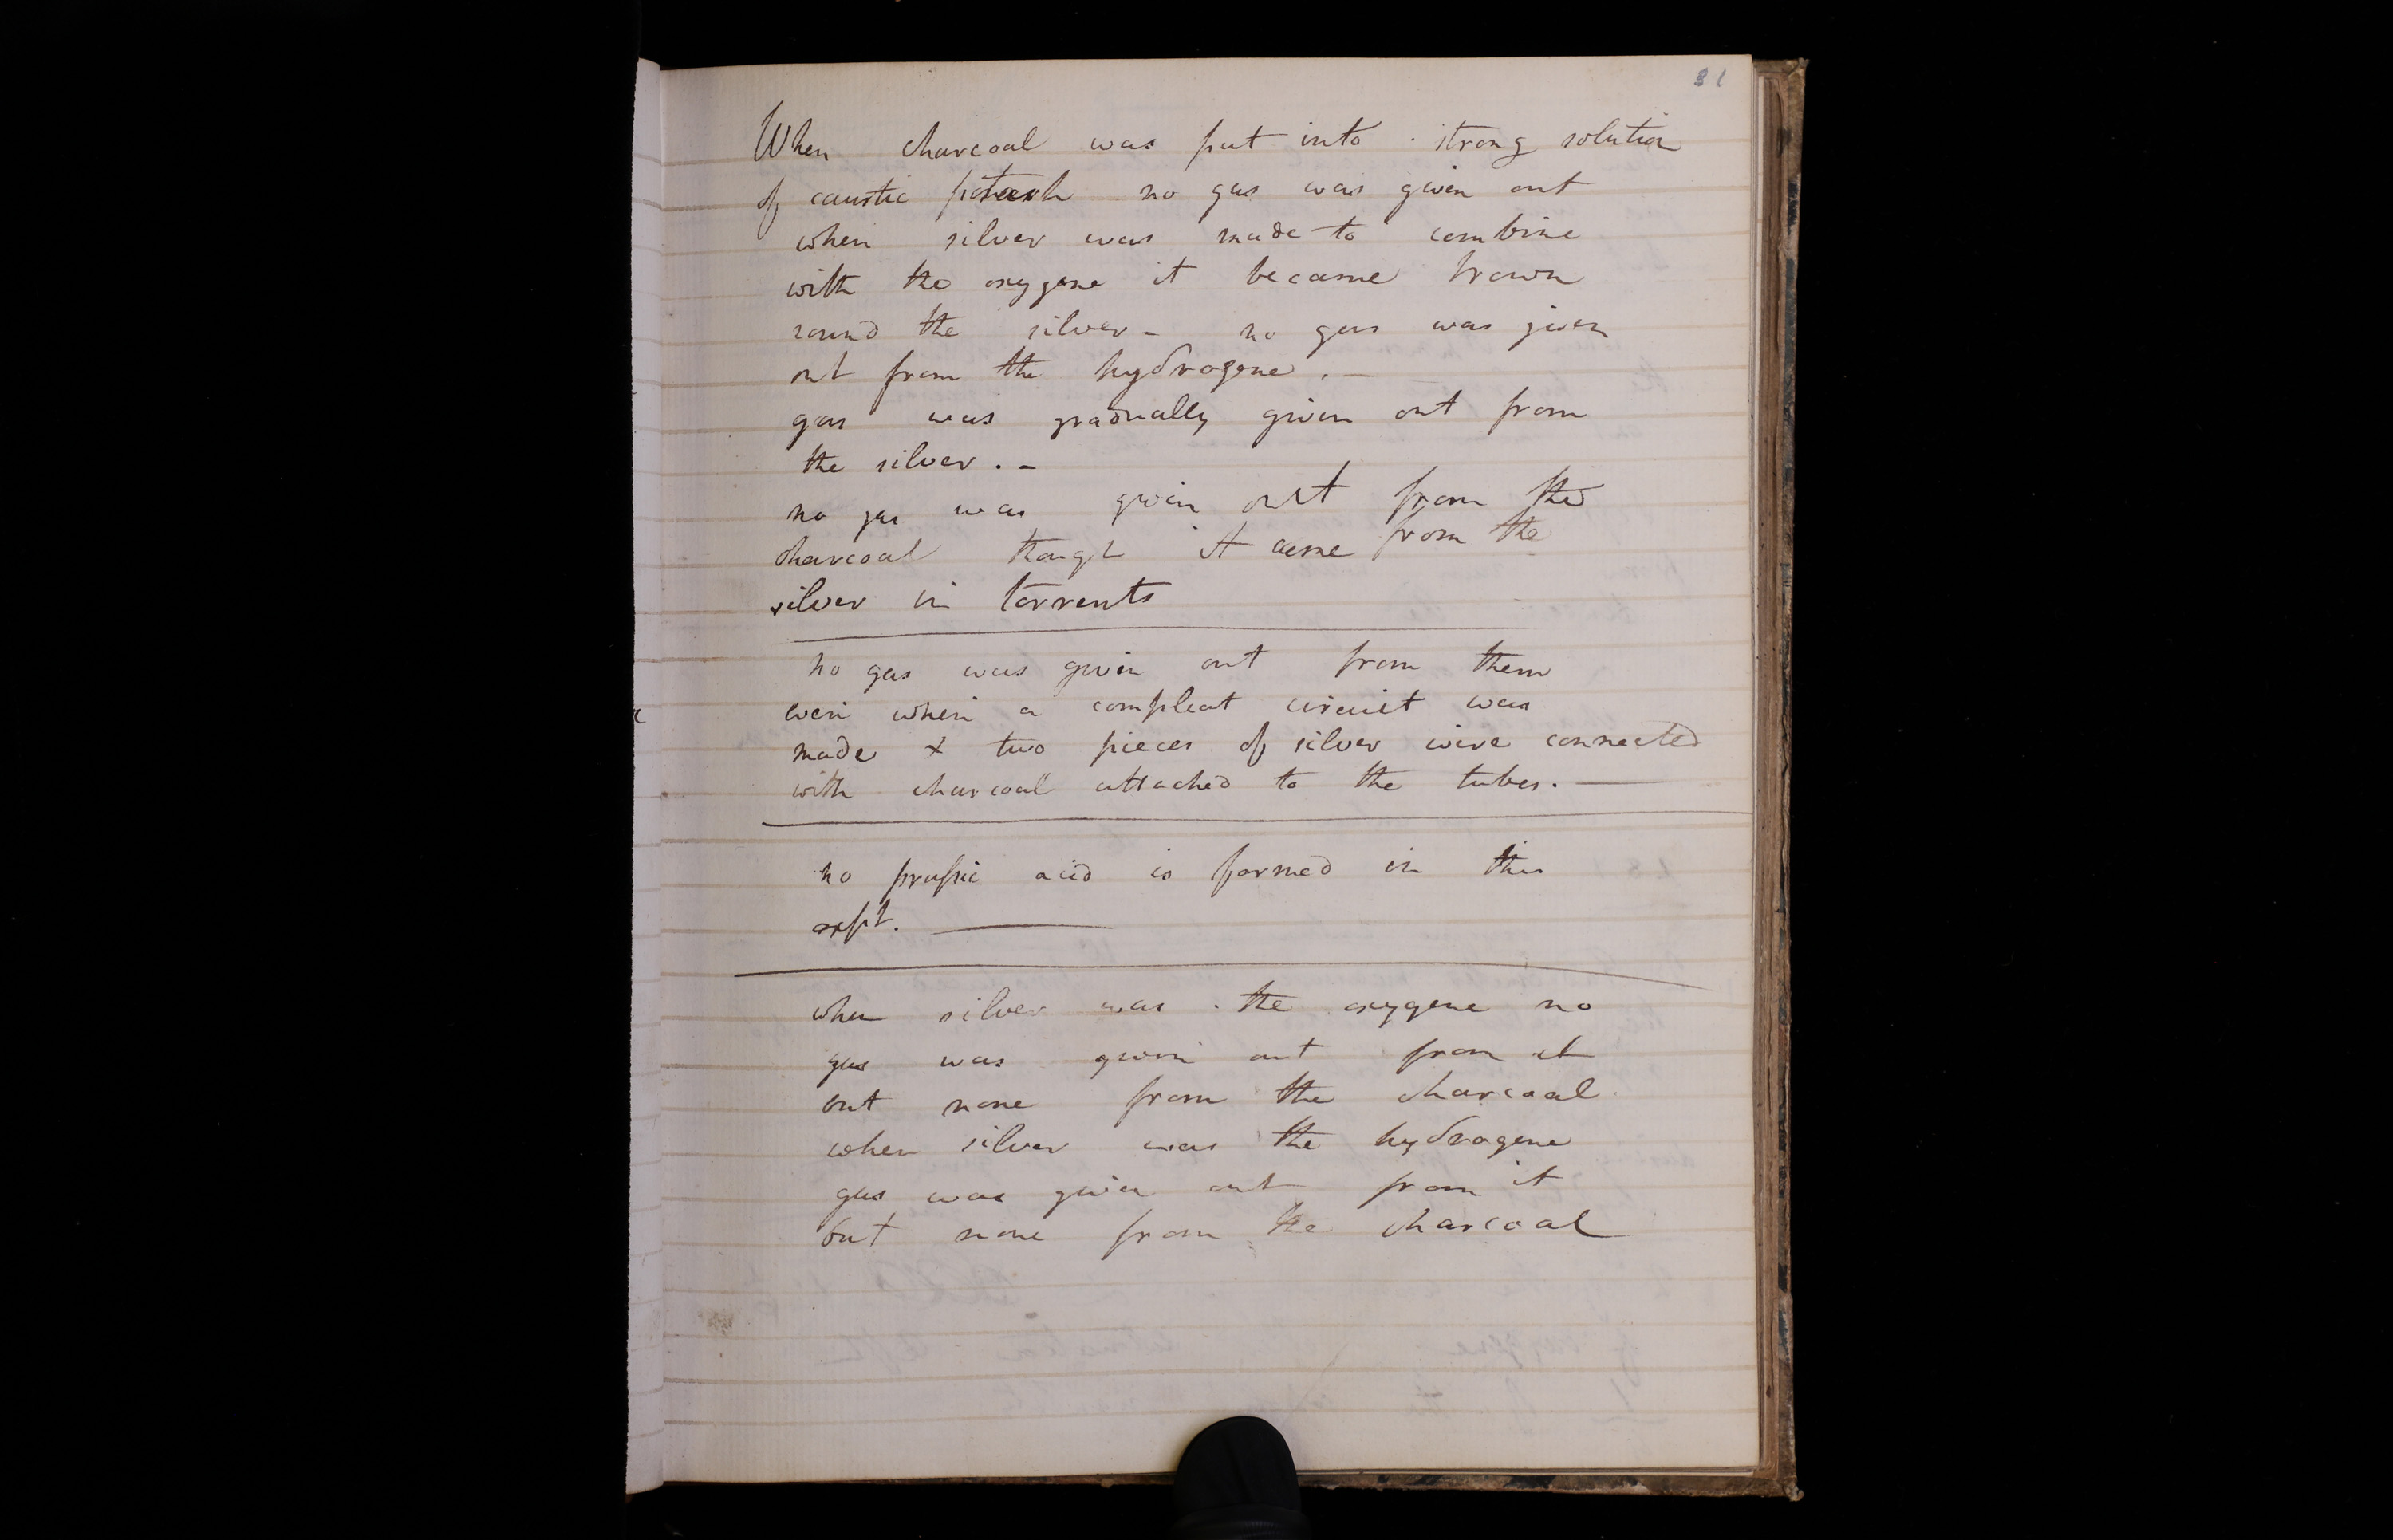 31
When charcoal was put into strong solution
of caustic potash no gas was given out
when silver was made to combine
with the oxygene it became brown
round the silver - no gas was given
out from the hydrogene. -
gas was gradually given out from
the silver. -
no gas was given out from the
charcoal though it came from the
silver in torrents
no gas was given out from them
even when a compleat circuit was
made & two pieces of silver wire connected
with charcoal attached to the tubes. —
no prussic acid is formed in this
expt. —
when silver was the oxygene no
gas was given out from it
but none from the charcoal.
when silver was the hydrogene
gas was given out from it
but none from the charcoal